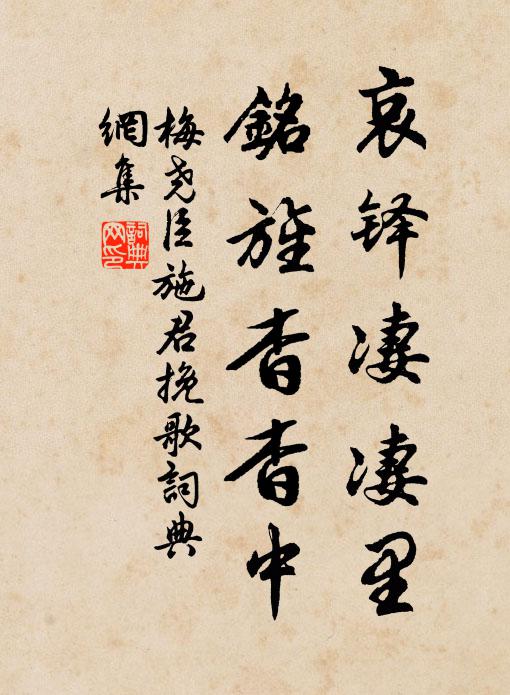 哀铎凄凄里
銘旌杳杳中
梅尧臣施君挽歌詞典
網集
詞典网印